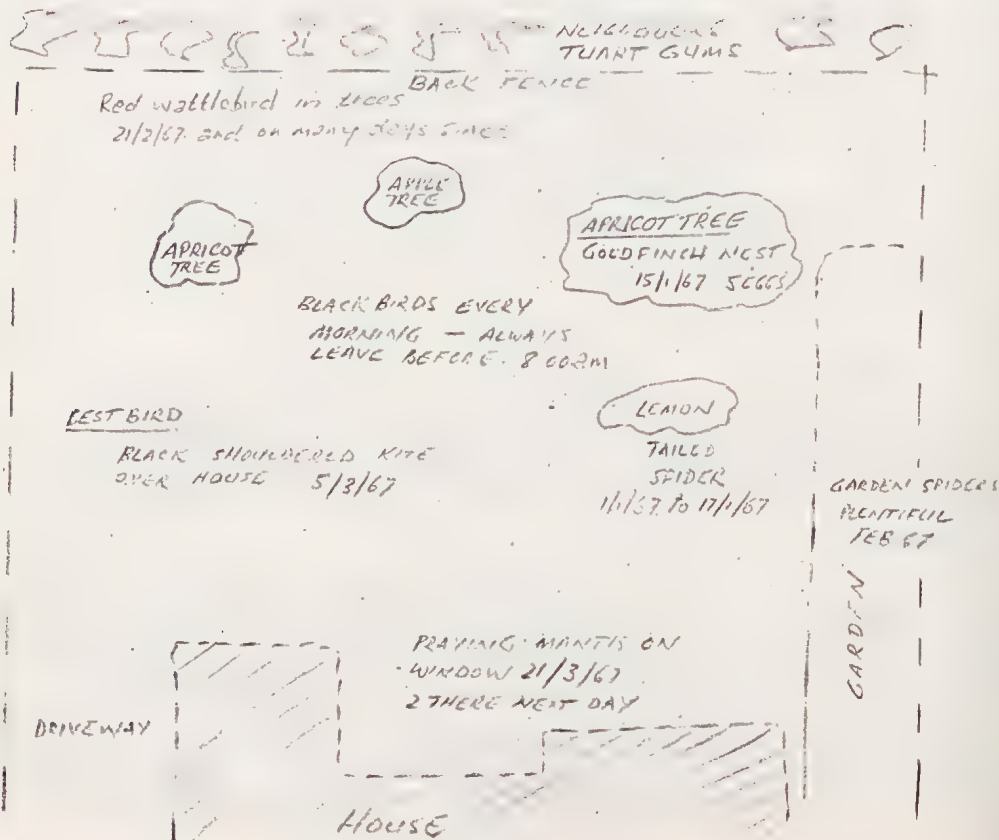 NEIGHBOUR'S
TUART GUMS
BACK FENCE
Red wattlebird in trees
21/2/67 and on many days since
APPLE
TREE
APRICOT
TREE
APRICOT TREE
GOLDFINCH NEST
15/1/67 5 EGGS
BLACK BIRDS EVERY
MORNING — ALWAYS
LEAVE BEFORE 8 00am
BEST BIRD
BLACK SHOULDERED KITE
OVER HOUSE 5/3/67
LEMON
TAILED
SPIDER
1/1/67 to 17/1/67
GARDEN SPIDERS
PLENTIFUL
FEB 67
GARDEN
PRAYING MANTIS ON
WINDOW 21/3/67
2 THERE NEXT DAY
DRIVEWAY
HOUSE